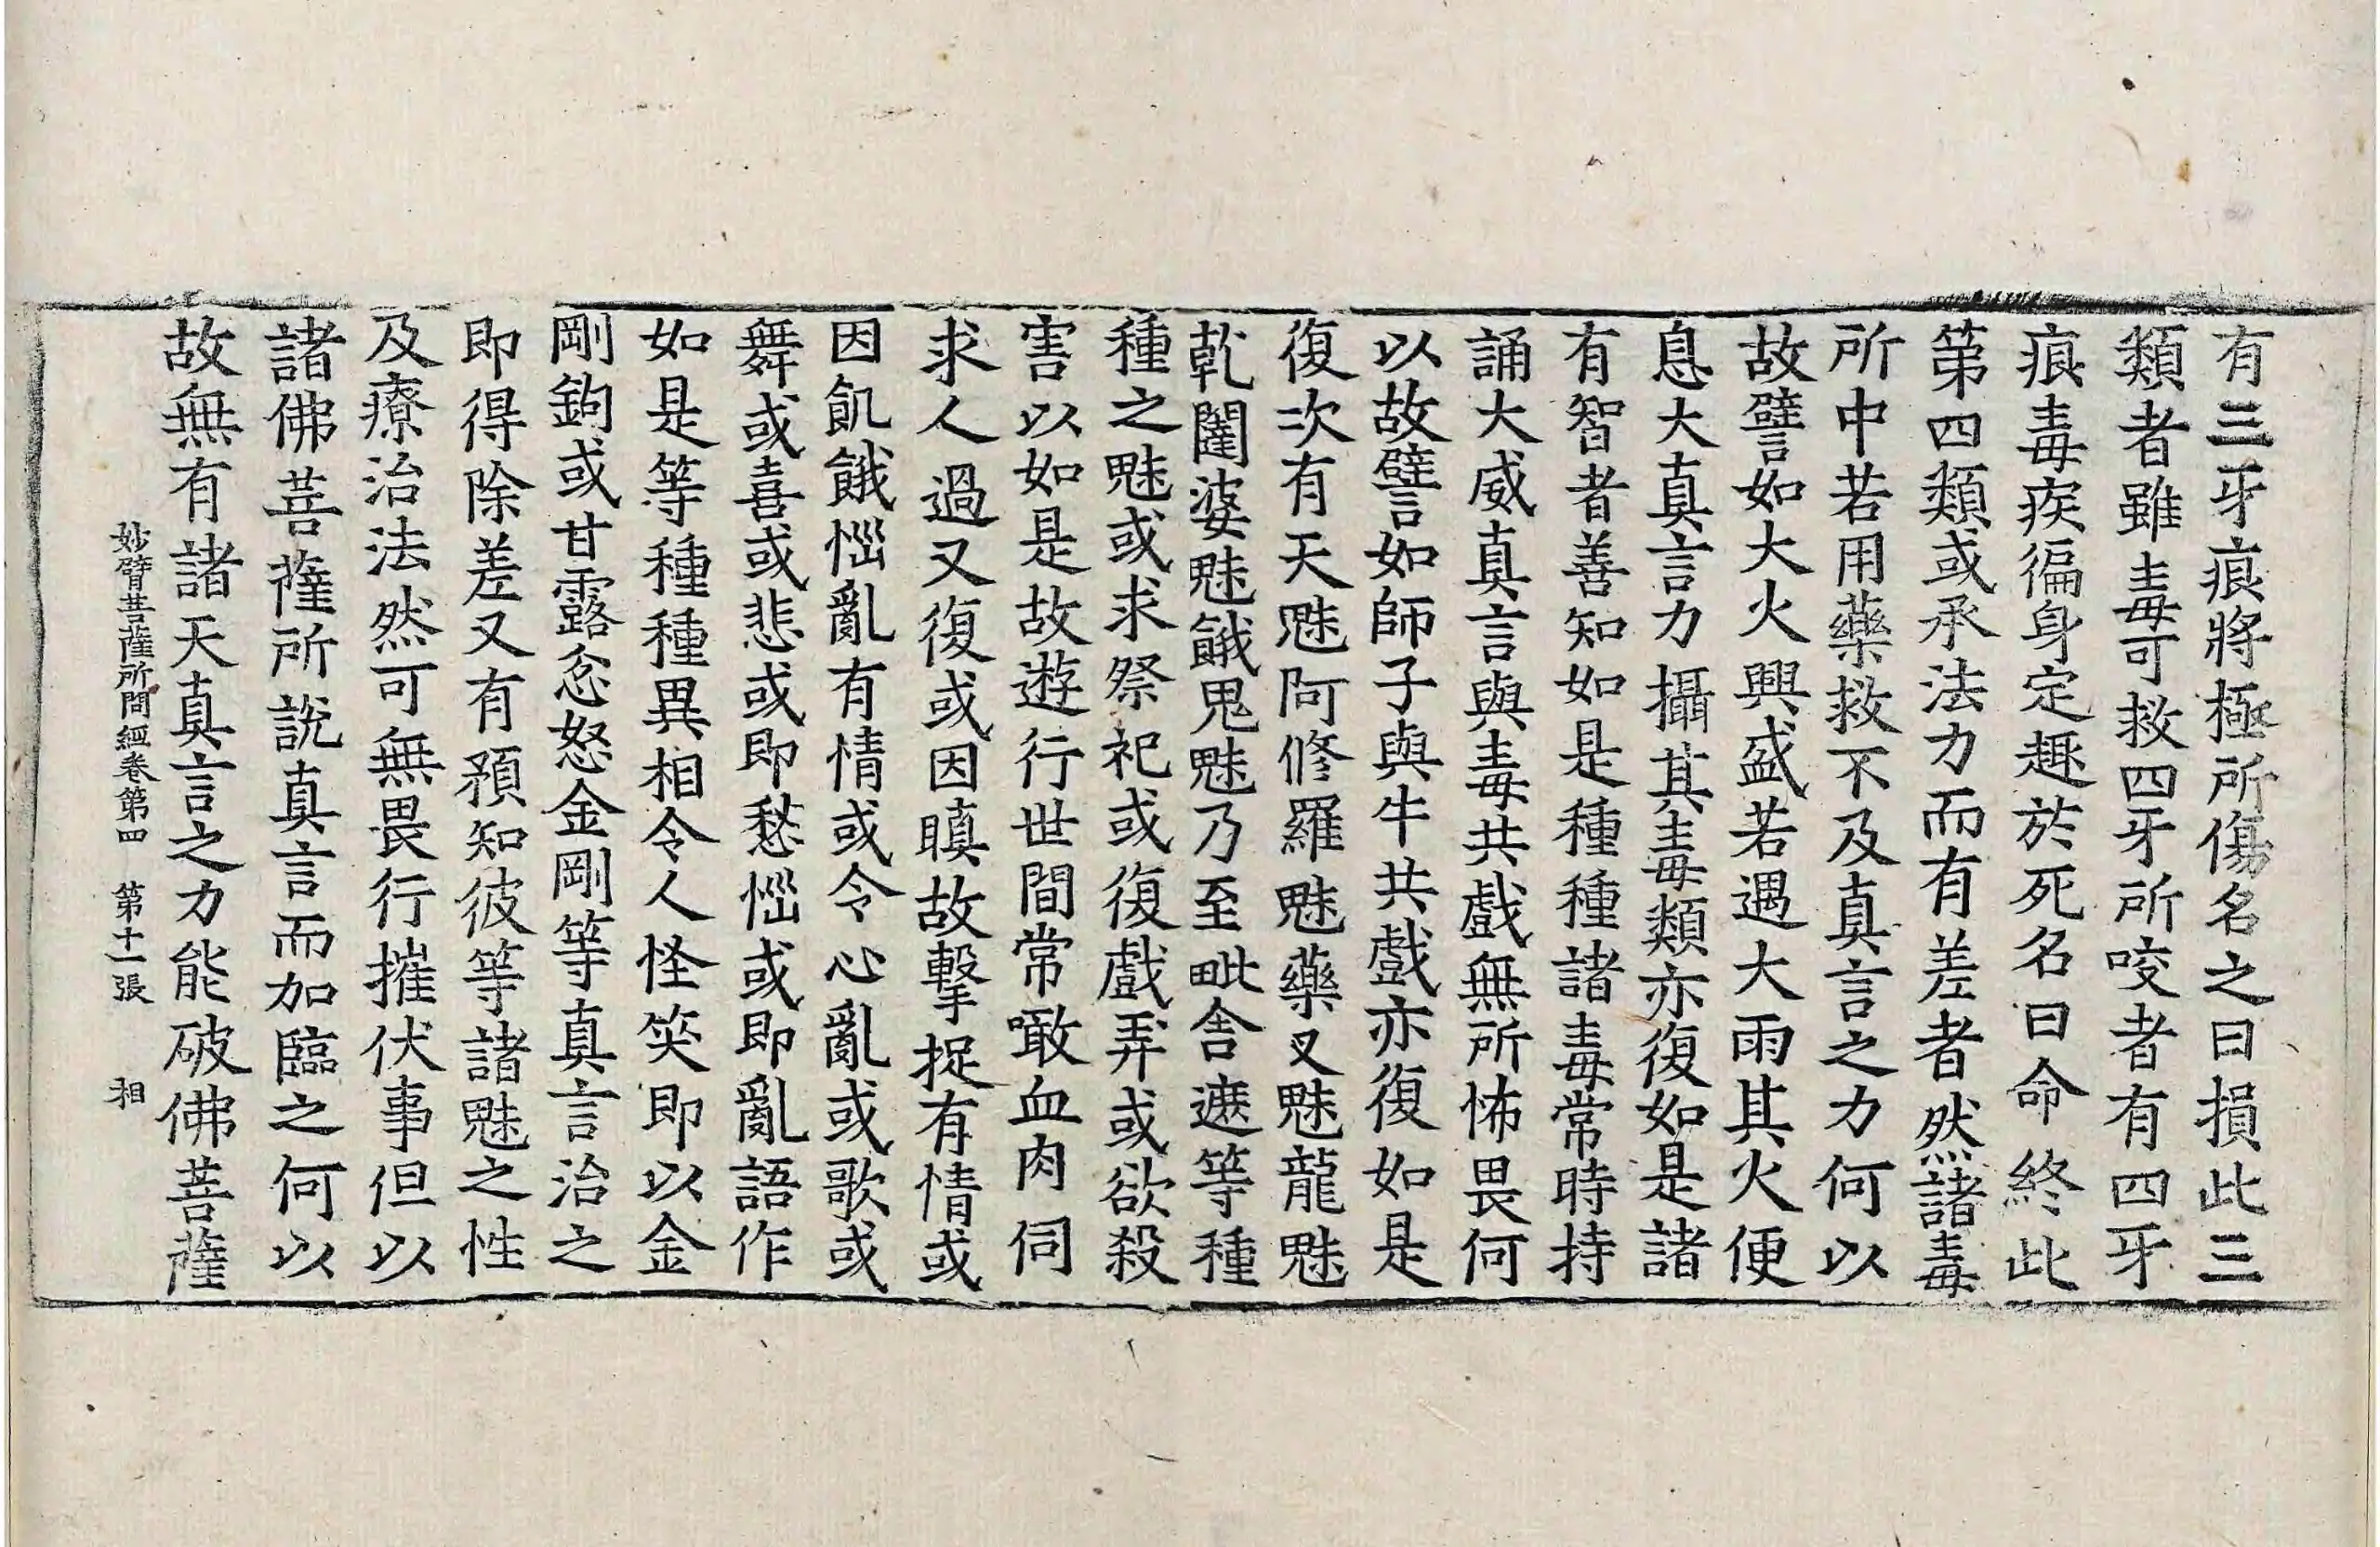 有三牙痕將極所傷名之曰損此三
類者雖毒可救四牙所咬者有四牙
痕毒疾徧身定趣於死名曰命終此
第四類或承法力而有差者然諸毒
所中若用藥救不及真言之力何以
故譬如大火興盛若遇大雨其火便
息大真言力攝其毒類亦復如是諸
有智者善知如是種種諸毒常時持
誦大威真言與毒共戲無所怖畏何
以故譬如師子與牛共戲亦復如是
復次有天魅阿修羅魅藥叉魅龍魅
乹闥婆魅餓鬼魅乃至毗舍遮等種
種之魅或求祭祀或復戲弄或欲殺
害以如是故遊行世間常噉血肉伺
求人過又復或因瞋故擊捉有情或
因飢餓惱亂有情或令心亂或歌或
舞或喜或悲或即愁惱或即亂語作
如是等種種異相令人怪笑即以金
剛鉤或甘露忿怒金剛等真言治之
即得除差又有預知彼等諸魅之性
及療治法然可無畏行摧伏事但以
諸佛菩薩所說真言而加臨之何以
故無有諸天真言之力能破佛菩薩
妙臂菩薩所問經卷第四 第十一張 相